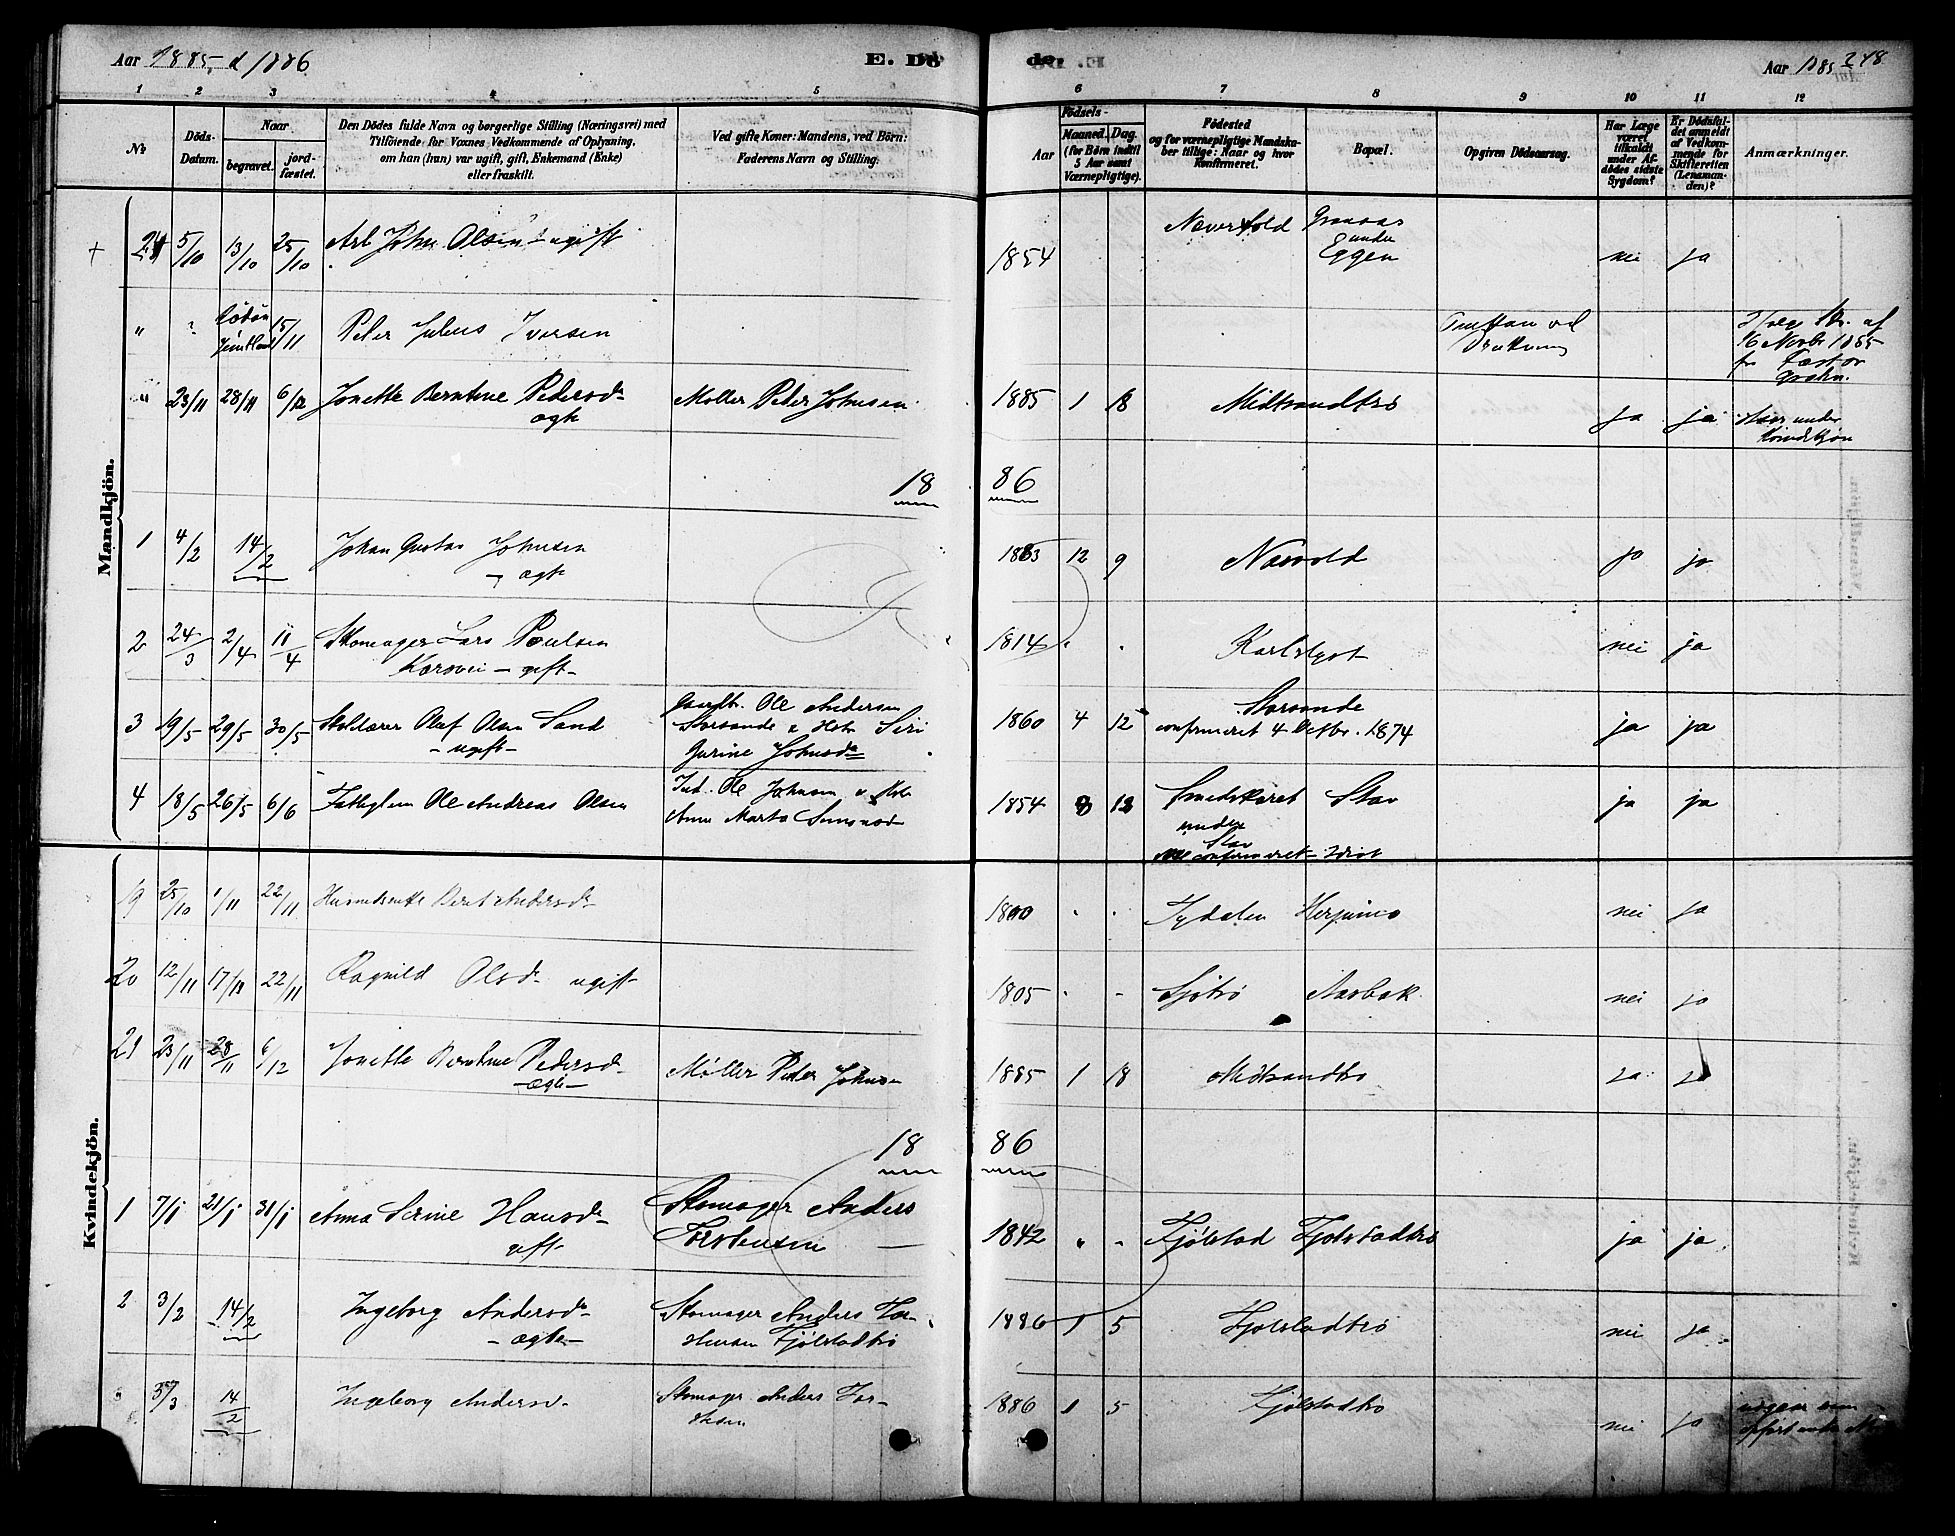 Aar 1885 & 1886
E. Dö
de.
Aar 1885
248
1 2 3 4 5 6 7 8 9 10 11 12
No
Döds-Datum.
Naar
begravet.
jord-fæstet.
Den Dödes fulde Navn og borgerlige Stilling (Næringsvei) med
Tilföiende for Voxnes Vedkommende af Oplysning,
om han (hun) var ugift, gift, Enkemand (Enke)
eller fraskilt.
Ved gifte Koner: Mandens, ved Börn:
Faderens Navn og Stilling.
Födsels-
Aar
Maaned. Dag.
(for Börn indtil
5 Aar samt
Værnepligtige).
Födested
og for værnepligtige Mandska-
ber tillige: Naar og hvor
Konfirmeret.
Bopæl.
Opgiven Dödsaarsag.
Har Læge
været
tilkaldt
under Af-
dödes sidste
Sygdom?
Er Dödsfal-
det anmeldt
af Vedkom-
mende for
Skifteretten
(Lensman-
den)?
Anmærkninger.
Mandkjön.
+ 24 5/10 13/10 25/10 Arb John Olsen - ugift 1854 Nævervold Granaas under Eggen nei ja
" 15/11 Peter Julius Iversen 16 Novbr 1885
" 23/11 28/11 6/12 Jonette Berntine Pedersdr ægte Møller Peter Johnsen 1885 1 18 Midtsandtrø ja ja under Kvindekjøn
18 86
1 4/2 14/2 Johan Gustav Johnsen - ægte 1883 12 9 Næsvold ja ja
2 24/3 2/4 11/4 Skomager Lars Poulsen Korsvei - gift - 1814 " " Karlslyst nei ja
3 19/5 29/5 30/5 Skolelærer Oluf Olsen Sand - ugift - Gaardbr. Ole Andersen Storsande & Hstr Siri Gurine Johnsdr 1860 4 12 Storsande confirmeret 4 Octbr. 1874 ja ja
4 18/5 26/5 6/6 Fattiglem Ole Andreas Olsen Ind. Ole Johnsen & Hstr Anne Marta Simonsd 1854 8 12 Smedskaret under Stav confirmeret Idiot Stav ja ja
Kvindekjön.
19 25/10 1/11 22/11 Berit Andersdr 1800 " " Tydalen nei ja
20 12/11 17/11 22/11 Ragnild Olsdr ugift 1805 " " Sjøtrø Aasbak nei ja
21 23/11 28/11 6/12 Jonette Berntine Pedersdr - ægte - Møller Peder Johnsen 1885 1 18 Midtsandtrø ja ja
18 86
1 7/1 21/1 31/1 Anna Serine Hansdr gift Skomager Anders Torstensen 1842 " " Fjølstad Fjølstadtrø ja ja
2 3/2 14/2 Ingeborg Andersdr - ægte - Skomager Anders Torstensen Fjølstadtrø 1886 1 5 Fjølstadtrø nei ja
" 3/3 14/2 Ingeborg Andersd. Skomager Anders Torstensen 1886 1 5 Fjølstadtrø nei ja